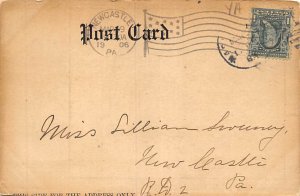 NEWCASTLE
1906
PA.
Post Card
Miss Lillian Sweeney,
New Castle
Pa.
R.D. 2
FOR THE ADDRESS ONLY